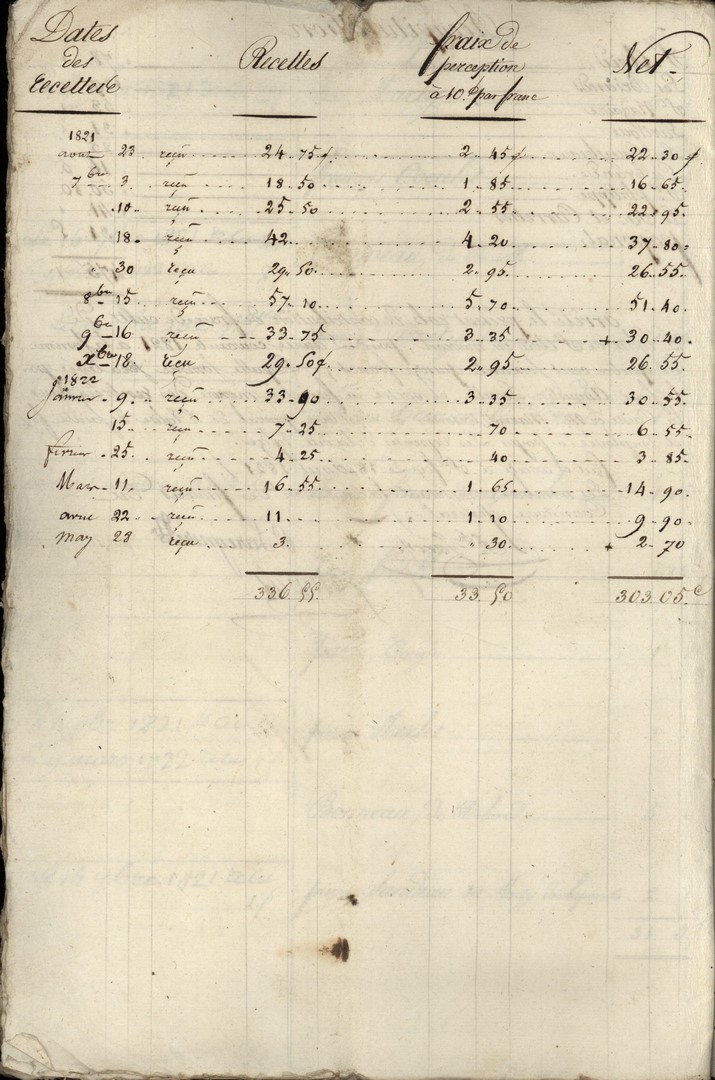 Dates des Recettes
Recettes
fraix de perception à 10.c par franc
Net
1821
aout 23 reçu 24.75c 2.45c 22.30c
7bre 3. reçu 18.50 1.85 16.65.
10. reçu 25.50 2.55 22.95.
18. reçu 42. 4.20 37.80
" 30 reçu 29.50. 2.95 26.55
8bre 15. reçu 57.10 5.70 51.40.
9bre 16 reçu 33.75 3.35 + 30.40.
Xbre 18. reçu 29.50c 2.95 26.55
1822
janvier 9. reçu 33.90 3.35 30.55
15. reçu 7.25 70 6.55
fevrier 25. reçu 4.25 40 3.85.
Mars 11. reçu 16.55 1.65 14.90.
avril 22 reçu 11. 1.10 9.90.
may 28 reçu 3. " 30. + 2.70
336.55 33.50 303.05c